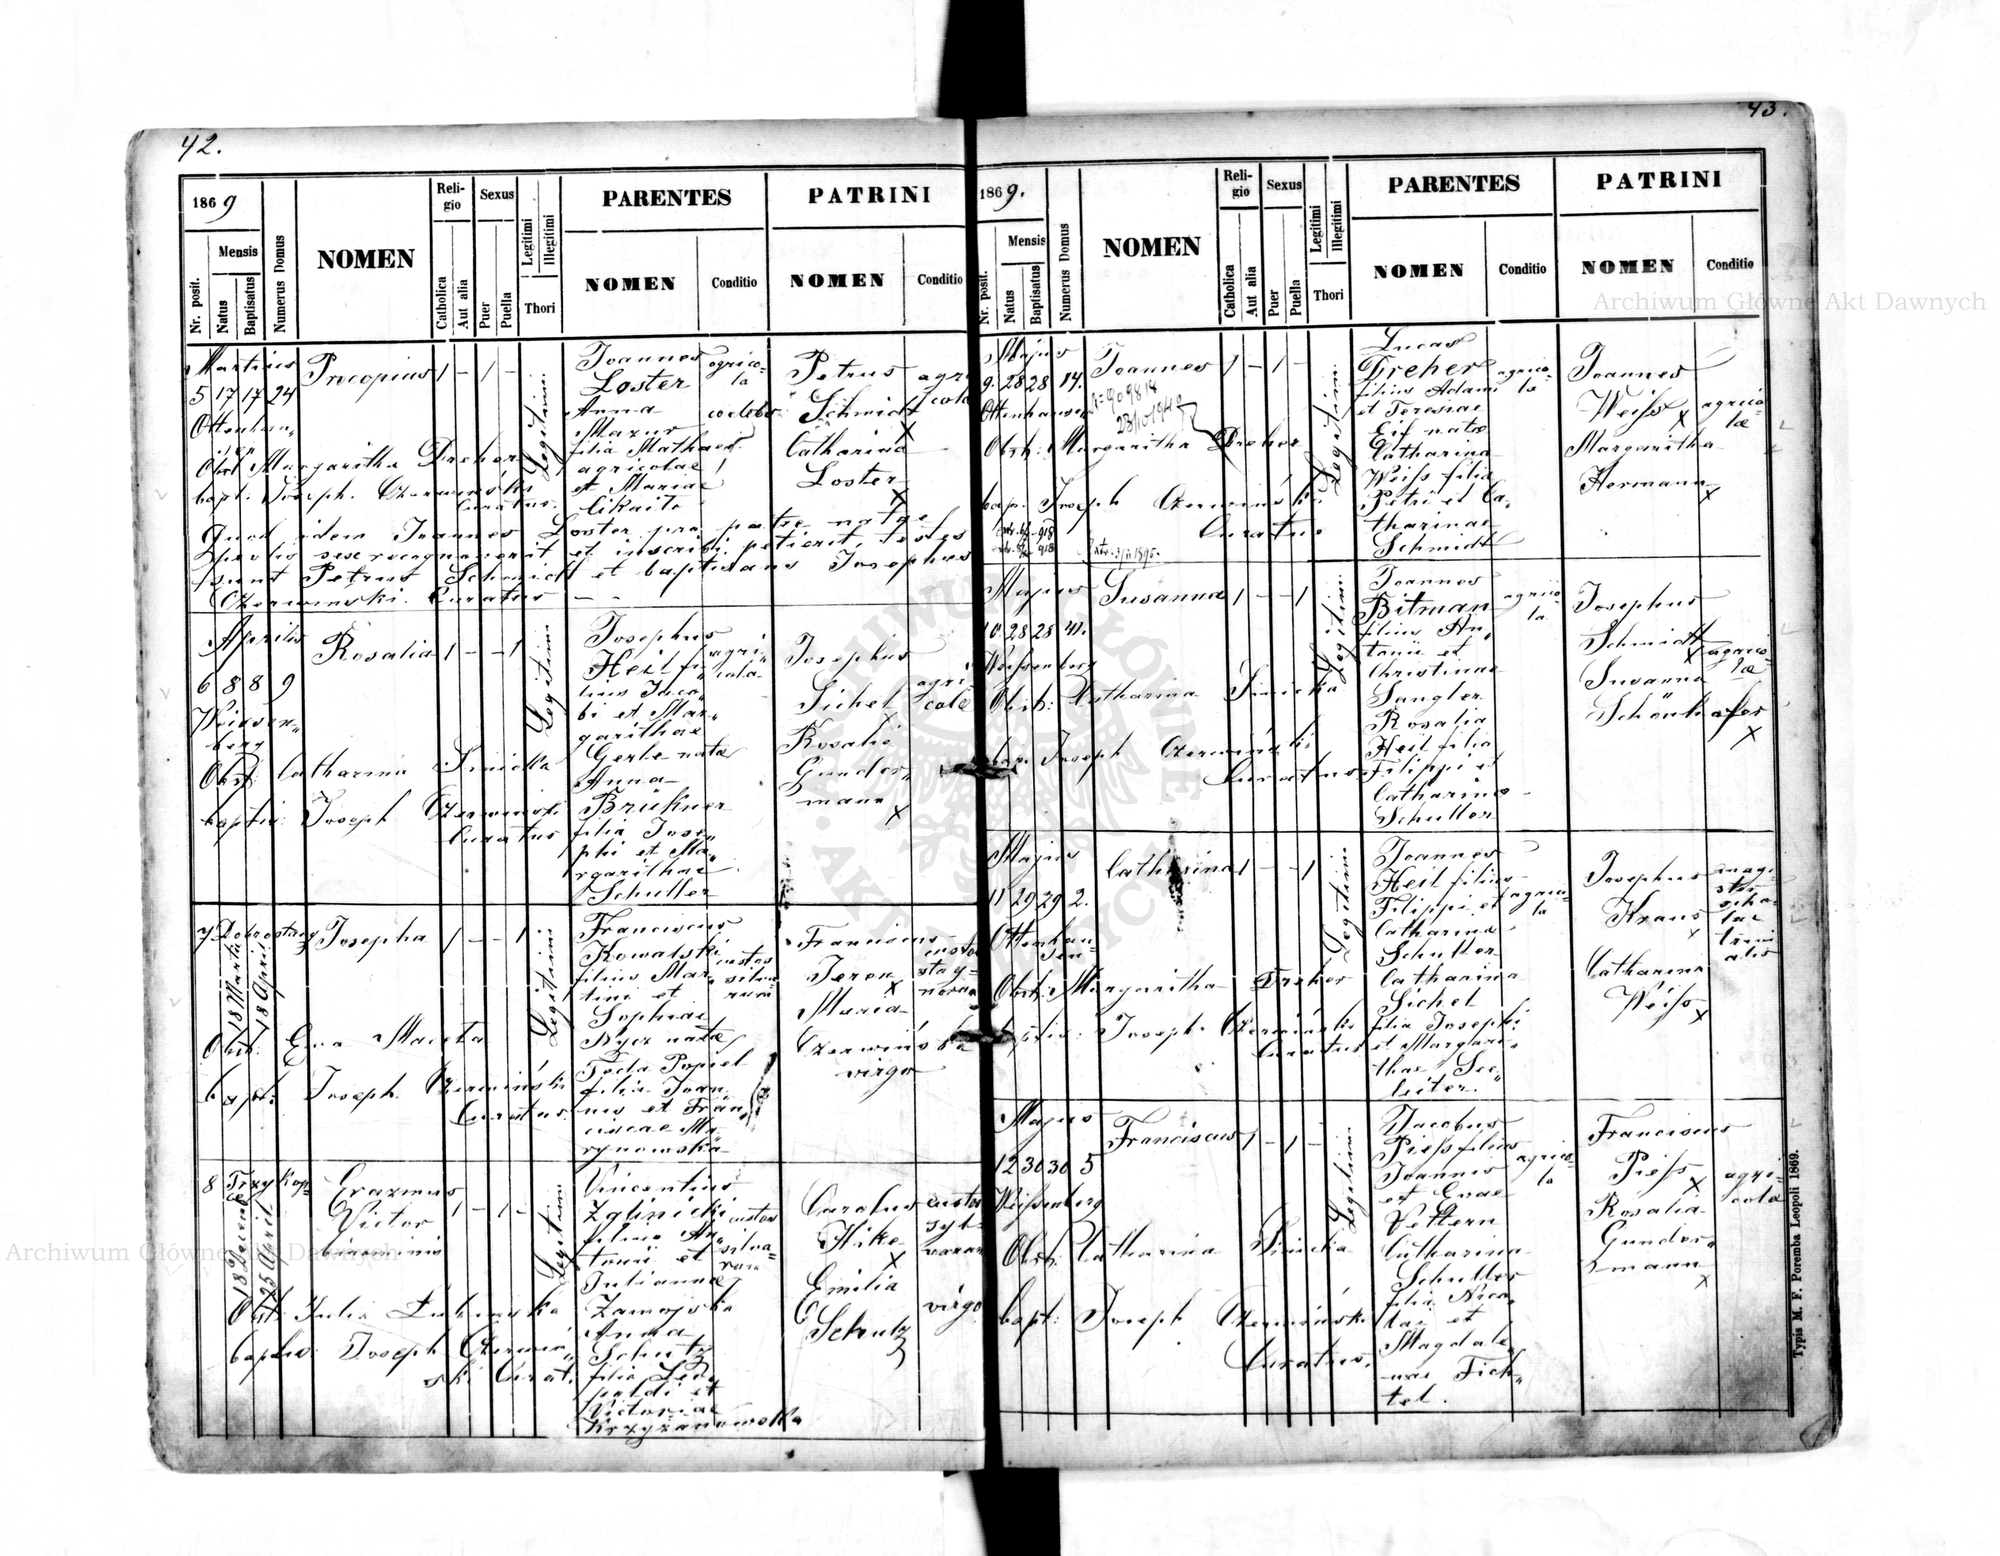 42.
1869
Nr. posit.
Mensis
Natus
Baptisatus
Numerus Domus
NOMEN
Reli-
gio
Catholica
Aut alia
Sexus
Puer
Puella
Legitimi
Illegitimi
Thori
PARENTES
NOMEN
Conditio
PATRINI
NOMEN
Conditio
Martius
5 17 17 24
Procopius 1 – 1 –
Legitimi
Joannes
Loster
Anna
Mazur
filia Mathaei
agricolae
et Mariae
agrico-
la
Petrus
Schmidt
x
Catharina
Loster
x
agri
cola
Obst Margaritha Dreher
bapt: Joseph Czerwiński
Curatus
Quod idem Joannes Loster pro patre natae
prolis sese recognoverit et inscribi petierit testes
sunt Petrus Schmidt et baptisans Josephus
Czerwinski Curatus – –
Aprilis
6 8 8 9
Weissen-
berg
Rosalia 1 – – 1
Legitimi
Josephus
Heil fi-
lius Jaco-
bi et Mar-
garithae
Gerle natae
Anna
Brükner
filia Jose-
phi et Ma-
rgarithae
Schuller
agri-
cola
Josephus
Sichel
Rosalia
Gunder-
mann
x
agri
colae
Obst: Catharina Sinicka
baptis: Joseph Czerwinski
Curatus
7 Dobrostany
18 Martii
18 April
Josepha 1 – – 1
Legitimi
Franciscus
Kowalski
filius Mar-
tini et
Sophiae
Nycz natae
Tecla Popiel
filia Joan-
nis et Fran-
ciscae Ma-
rynowska
custos
silva-
rum
Franciscus
x
Maria
Czerwińska
virgo
Obst: Eva
bapt: Joseph Czerwiński
Curatus.
8
18 Decemb
25 April
Erazmus
Victor
binominis
1 – 1 –
Legitimi
Vincentius
Zglinicki
filius An-
tonii et
Juliannae
Zamojska
Anna
Schutz
filia Leo-
poldi et
Victoriae
Krzyżanowska
custos
silva-
rum
Carolus
Hike
x
Emilia
Schulz
virgo
Obst: Julia Łukinska
baptis: Joseph Czerwiń-
ski Curat.
43.
1869.
Nr. posit.
Mensis
Natus
Baptisatus
Numerus Domus
NOMEN
Reli-
gio
Catholica
Aut alia
Sexus
Puer
Puella
Legitimi
Illegitimi
Thori
PARENTES
NOMEN
Conditio
PATRINI
NOMEN
Conditio
Majus
9. 28 28 14.
Ottenhausen
Joannes 1 – 1 –
Legitimi
Lucas
Dreher
filius Adami
et Teresiae
natae
Catharina
Weiss filia
Petri et Ca-
tharinae
Schmidt
agrico-
la
Joannes
Weiss
x
Margaritha
Hermann
x
agrico-
lae
Obst: Margaritha Dreher
bap. Joseph Czerwiński
Curatus
Majus
10. 28 28 41.
Weissenberg
Susanna 1 – – 1
Legitimi
Joannes
Bitman
filius An-
tonii et
Christinae
Sangler
Rosalia
Heil filia
Filippi et
Catharinae
Schuller
agrico-
la
Josephus
Schmidt
x
Susanna
Schönhofer
x
agrico-
lae
Obst: Catharina Sinicka
bap. Joseph Czerwiński
Curatus
Majus
11 29 29 2.
Ottenhau-
sen
Catharina 1 – – 1
Legitimi
Joannes
Heil filius
Filippi et
Catharina
Schuller
Catharina
Sichel
filia Josephi
et Margari-
thae See-
leiter.
agrico-
la
Josephus
Kraus
x
Catharina
Weiss
x
Obst: Margaritha Dreher
baptis: Joseph Czerwiński
Curatus
Majus
12 30 30 5
Weissenberg
Franciscus 1 – 1 –
Legitimi
Jacobus
Piess filius
Joannis
et Evae
Vettern
Catharina
Schuller
filia Nico-
lai et
Magdale-
nae Fich-
tel.
agrico-
la
Franciscus
Piess
x
Rosalia
Gunder-
mann
x
agri
colae
Obst: Catharina Sinicka
bapt: Joseph Czerwiński
Curatus.
Typis M. F. Poremba Leopoli 1869.
Archiwum Główne Akt Dawnych
Archiwum Główne Akt Dawnych
ARCHIWUM GŁÓWNE AKT DAWNYCH